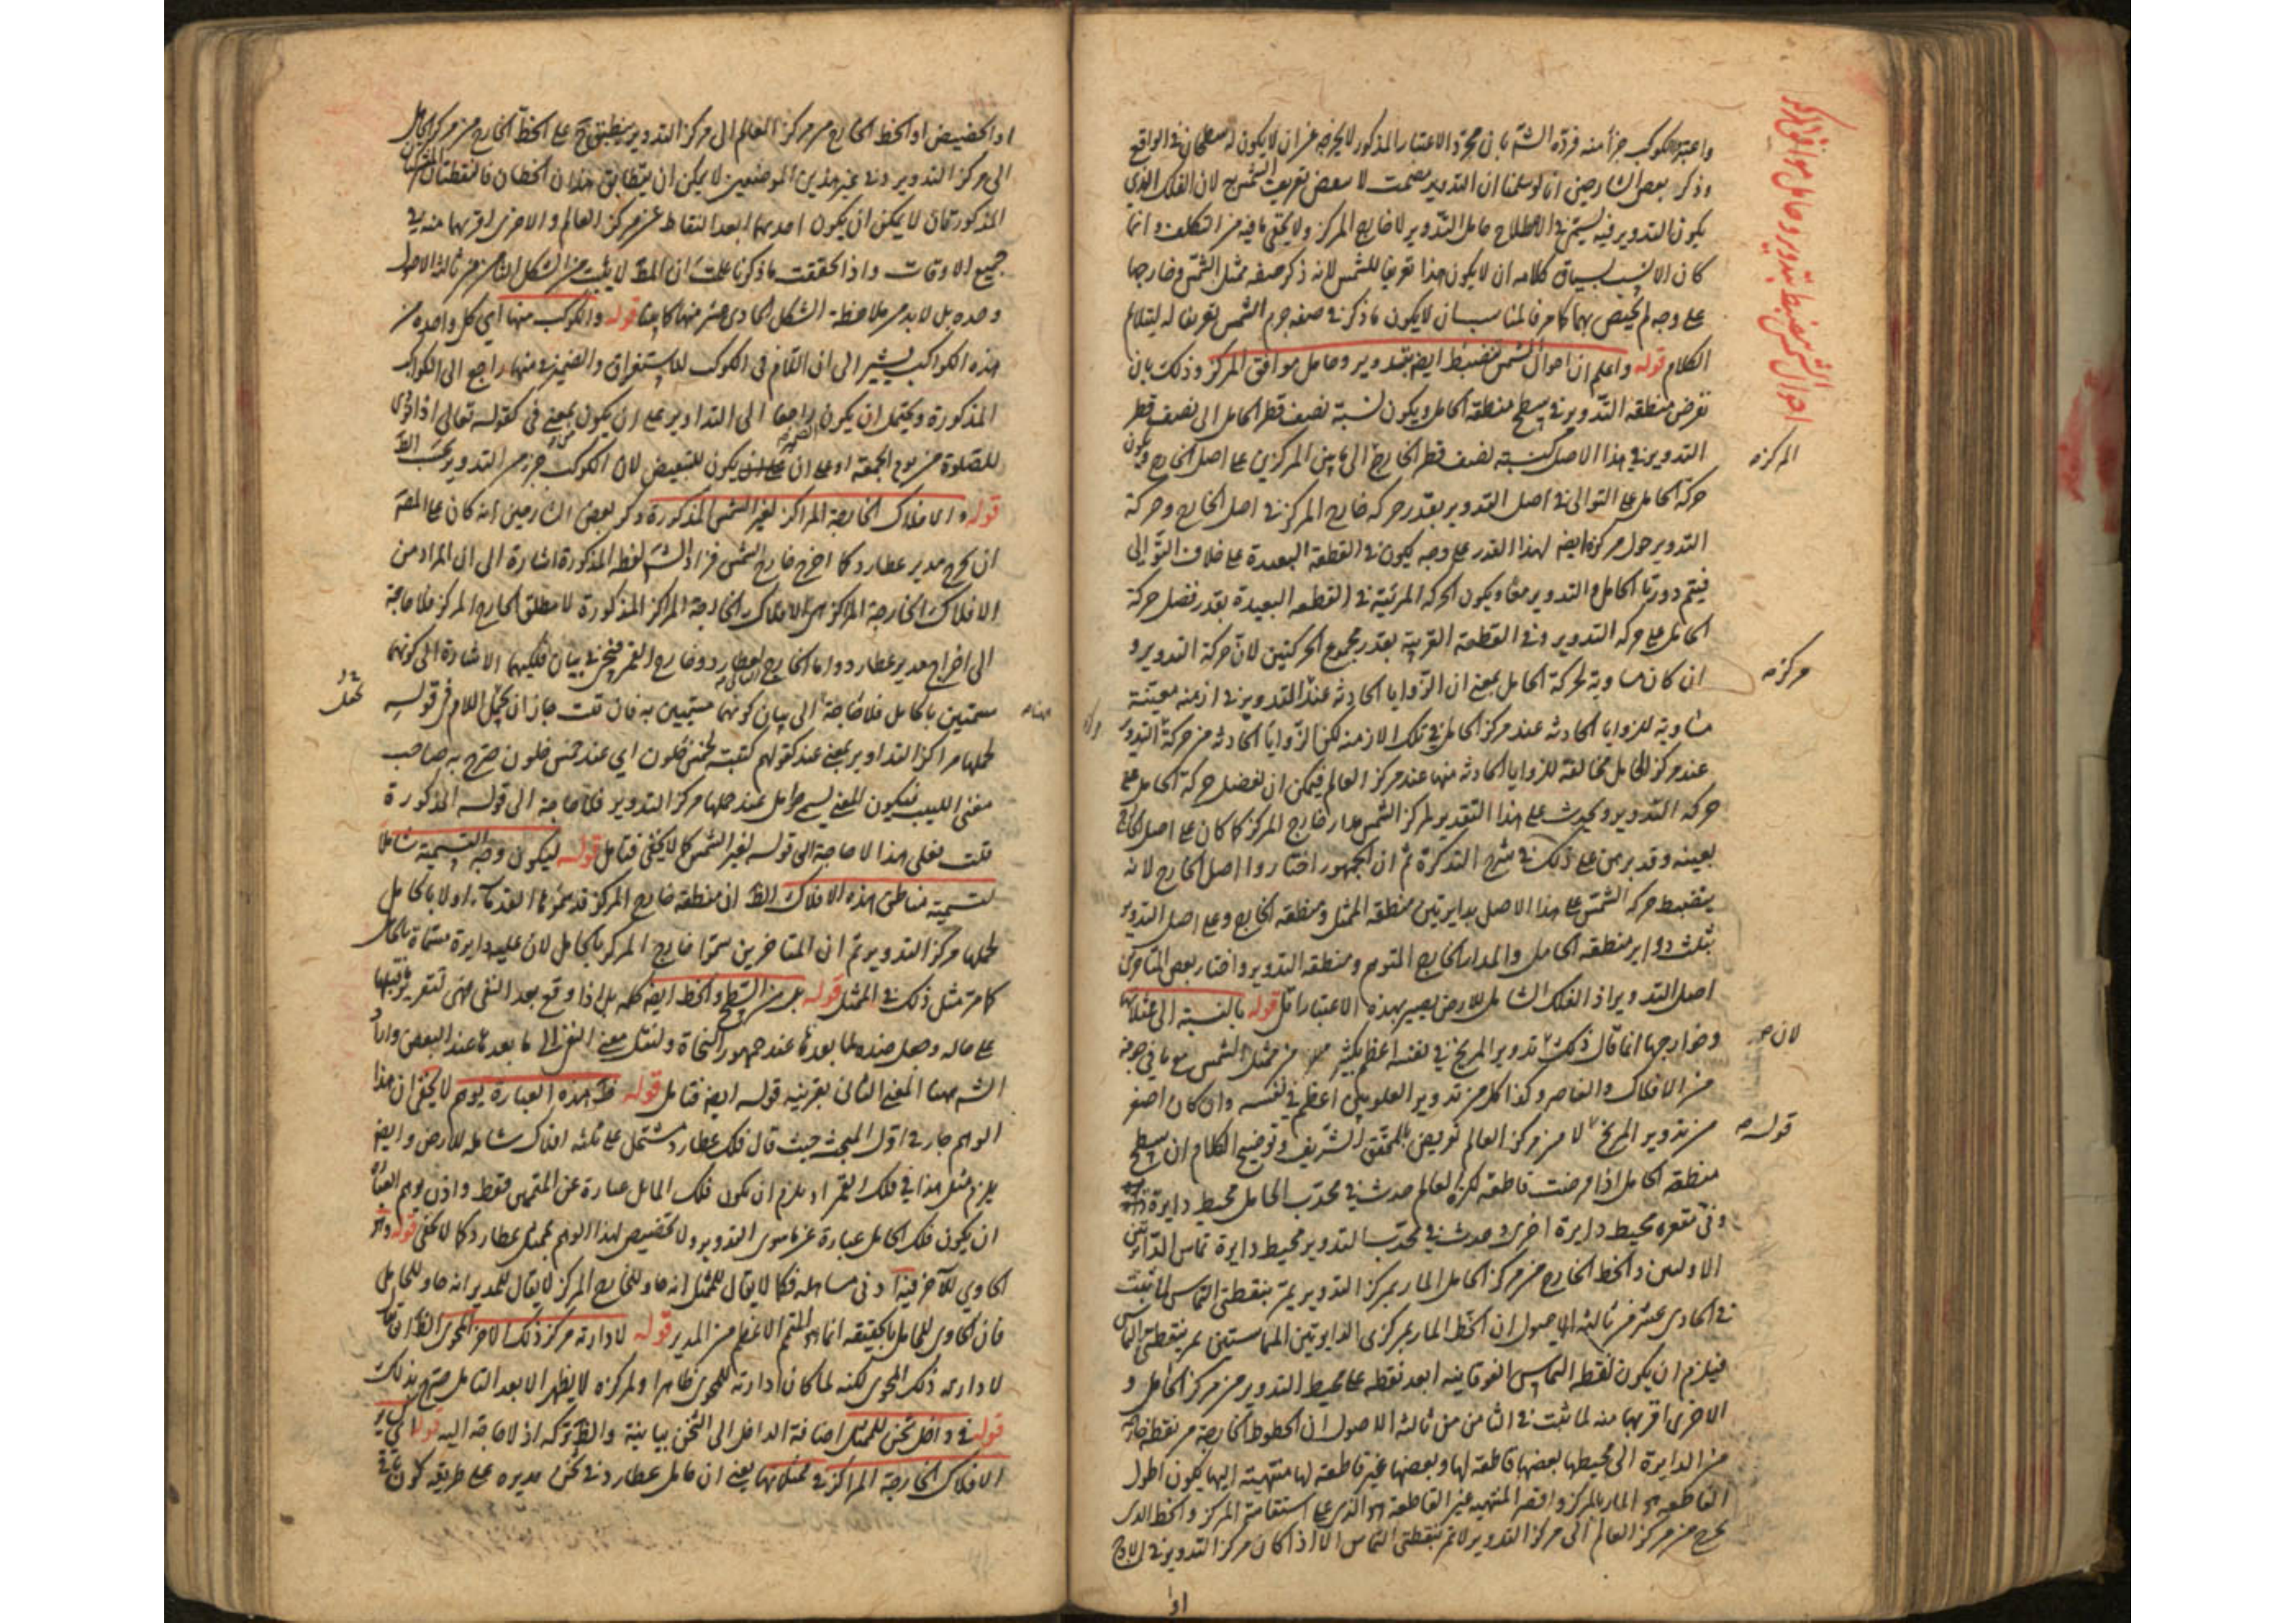 واعتبر الكوكب جزأ منه فرده الش بان مجرد الاعتبار المذكور لا يخرجه عن ان لا يكون له سطحان في الواقع
وذكر بعض الشارحين انا لو سلمنا ان التدوير مصمت لا ينتقض تعريف الشمس لان الفلك الذي
يكون التدوير فيه يسمى في الاصطلاح حامل التدوير لا خارج المركز ولا يخفى ما فيه من التكلف وانما
كان الانسب بسياق كلامه ان لا يكون هذا تعريفا للشمس لانه ذكر صفه ممثل الشمس وخارجها
على وجه لم يختص بهما كما مر فالمناسب ان لا يكون ما ذكر في صفه جرم الشمس تعريفا له ليتلائم
الكلام قوله واعلم ان احوال الشمس تنضبط ايضه بتدوير وحامل موافق المركز وذلك بان
نفرض منطقه التدوير في سطح منطقه الحامل ويكون نسبة نصف قطر الحامل الى نصف قطر
التدوير في هذا الاصل كنسبة نصف قطر الخارج الى ما بين المركزين على اصل الخارج ويكون
حركة الحامل على التوالى في اصل التدوير بقدر حركه خارج المركز في اصل الخارج وحركة
التدوير حول مركزه ايضه لهذا القدر على وجه يكون في القطعة البعيدة على خلاف التوالى
فيتم دورتا الحامل والتدوير معا ويكون الحركه المرئية في القطعه البعيدة بقدر فضل حركة
الحامل على حركه التدوير وفي القطعة القريبة بقدر مجموع الحركتين لان حركة التدوير و
ان كان مساوية لحركة الحامل بمعنى ان الزوايا الحادثه عند التدوير في ازمنه معينة
مساوية للزوايا الحادثه عند مركز الحامل في تلك الازمنه لكن الزوايا الحادثه من حركة التدوير
عند مركز الحامل مخالفة للزوايا الحادثه منها عند مركز العالم فيمكن ان يفضل حركة الحامل على
حركه التدوير ويحدث على هذا التقدير لمركز الشمس مدار خارج المركز كما كان على اصل الخارج
بعينه وقد برهن على ذلك في شرح التذكرة ثم ان الجمهور اختاروا اصل الخارج لانه
ينضبط حركه الشمس على هذا الاصل بدايرتين منطقه الممثل ومنطقه الخارج وعلى اصل التدوير
بثلث دواير منطقه الحامل والمدار الخارج المتوهم ومنطقه التدوير واختار بعض المتاخرين
اصل التدوير اذ الفلك الشامل للارض يصير بهذه الاعتبار اقل قوله بالنسبة الى ممثلاتها
وخوارجها انما قال ذلك تدوير المريخ في نفسه اعظم بكثير من ممثل الشمس مع ما في جوفه
من الافلاك والعناصر وكذا كل من تدوير العلويين اعظم في نفسه وان كان اصغر
من تدوير المريخ لا من مركز العالم تعريض بالمحقق الشريف وتوضيح الكلام ان سطح
منطقه الحامل اذا فرضت قاطعه لكرة العالم حدث في محدب الحامل محيط دايرة
وفي مقعره محيط دايرة اخرى وحدث في محدب التدوير محيط دايرة تماس الدائرتين
الاوليين والخط الخارج من مركز الحامل المار بمركز التدوير يمر بنقطتى التماس لما ثبت
في الحادى عشر من ثالثه الاصول ان الخط المار بمركزى الدايرتين المتماستين يمر بنقطتى التماس
فيلزم ان يكون نقطه التماس الفوقانيه ابعد نقطه على محيط التدوير من مركز الحامل و
الاخرى اقربها منه لما ثبت في الثامن من ثالثه الاصول ان الخطوط الخارجة من نقطه خارجة
من الدايرة الى محيطها بعضها قاطعه لها وبعضها غير قاطعه لها منتهيته اليها يكون اطول
القاطعه هو المار بالمركز واقصر المنتهيه غير القاطعة هو الذى على استقامته المركز والخط الذى
يخرج من مركز العالم الى مركز التدوير لا يمر بنقطتى التماس الا اذا كان مركز التدوير في الاوج
او
احوال الشمس تنضبط بتدوير وحامل موافق المركز
المركز
مركزه
لان
قوله
او الحضيض اذ الخط الخارج من مركز العالم الى مركز التدوير ينطبق ح على الخط الخارج من مركز الحامل
الى مركز التدوير وفي غير هذين الموضعين لا يمكن ان يتطابق هذان الخطان فالنقطتان
المذكورتان لا يمكن ان يكون احديهما ابعد النقاط عن مركز العالم والاخرى اقربهما منه في
جميع الاوقات واذا تحققت ما ذكرنا علمت ان المط لا يثبت من الشكل الثامن من ثالثة الاصول
وحده بل لا بد من ملاحظة الشكل الحادى عشر منها كما بينا قوله والكوكب منها اي كل واحد من
هذه الكواكب يشير الى ان اللام فى الكوكب للاستغراق والضمير في منها راجع الى الكواكب
المذكورة ويحتمل ان يكون راجعا الى التداوير على ان يكون بمعنى فى كقوله تعالى اذا نودى
للصلوة من يوم الجمعة او على ان يكون للتبعيض لان الكوكب جزء من التدوير بحسب الظ
قوله والافلاك الخارجة المراكز لغير الشمس المذكورة ذكر بعض الشارحين انه كان على المصه
ان يخرج مدير عطارد كما اخرج خارج الشمس فزاد الش لفظ المذكورة اشارة الى ان المراد من
الافلاك الخارجة المراكز هى الافلاك الخارجة المراكز المذكورة لا مطلق الخارج المركز فلا حاجة
الى اخراج مدير عطارد واما الخارج لعطارد وخارج القمر فيخرج في بيان فلكيهما الاشارة الى كونهما
مسميين بالحامل فلا حاجة الى بيان كونهما مسميين به فان قلت جاز ان يحمل اللام فى قوله
لحملها مراكز التداوير بمعنى عند كقولهم كتبته لخمس خلون اي عند خمس خلون صرح به صاحب
مغنى اللبيب فيكون المعنى يسمى حوامل عند حملها مركز التدوير فلا حاجة الى قوله المذكورة
قلت فعلى هذا لا حاجة الى قوله لغير الشمس كما لا يخفى فتامل قوله ليكون وجه التسمية شاملا
لتسمية مناطق هذه الافلاك الظ ان منطقه خارج المركز قد سموها القدماء اولا بالحامل
لحملها مركز التدوير ثم ان المتاخرين سموا خارج المركز بالحامل لان عليه دايرة مسماة بالحامل
كما مر مثل ذلك في الممثل قوله بل من السطح والخط ايضه كلمه بل اذا وقع بعد النفى فهى لتقرير ما قبلها
على حاله وجعل ضده لما بعدها عند جمهور النحاة ولنقل معنى النفى الى ما بعدها عند البعض واراد
الش ههنا المعنى الثانى بقرينه قوله ايضه فتامل قوله ظ هذه العبارة يوهم لا يخفى ان هذا
الوهم جار في اول المبحث حيث قال فلك عطارد مشتمل على ثلثه افلاك شامله للارض وايضه
يلزم مثل هذا في فلك القمر اذ يلزم ان يكون فلك المايل عبارة عن المتممين فقط واذن يوهم العبارة
ان يكون فلك الحامل عبارة عن ما سوى التدوير ولا تخصيص لهذا الوهم بممثل عطارد كما لا يخفى قوله
الحاوي للآخر فيه ادنى مساهله فكما لا يقال للممثل انه حاو للخارج المركز لا يقال للمدير انه حاو للحامل
فان الحاوى للحامل بالحقيقه انما هو المتمم الاعظم من المدير قوله لادارته مركز ذلك الاخر المحوى الظ ان يقال
لادارته ذلك المحوى لكنه لما كان ادارته للمحوى ظاهرا ولمركزه لا يظهر الا بعد التامل صرح بذلك
قوله في داخل ثخن للممثل اضافة الداخل الى الثخن بيانية والظ تركه اذ لا حاجة اليه قوله
الافلاك الخارجة المراكز في ممثلاتها يعنى ان حامل عطارد في ثخن مديره على طريقه كون